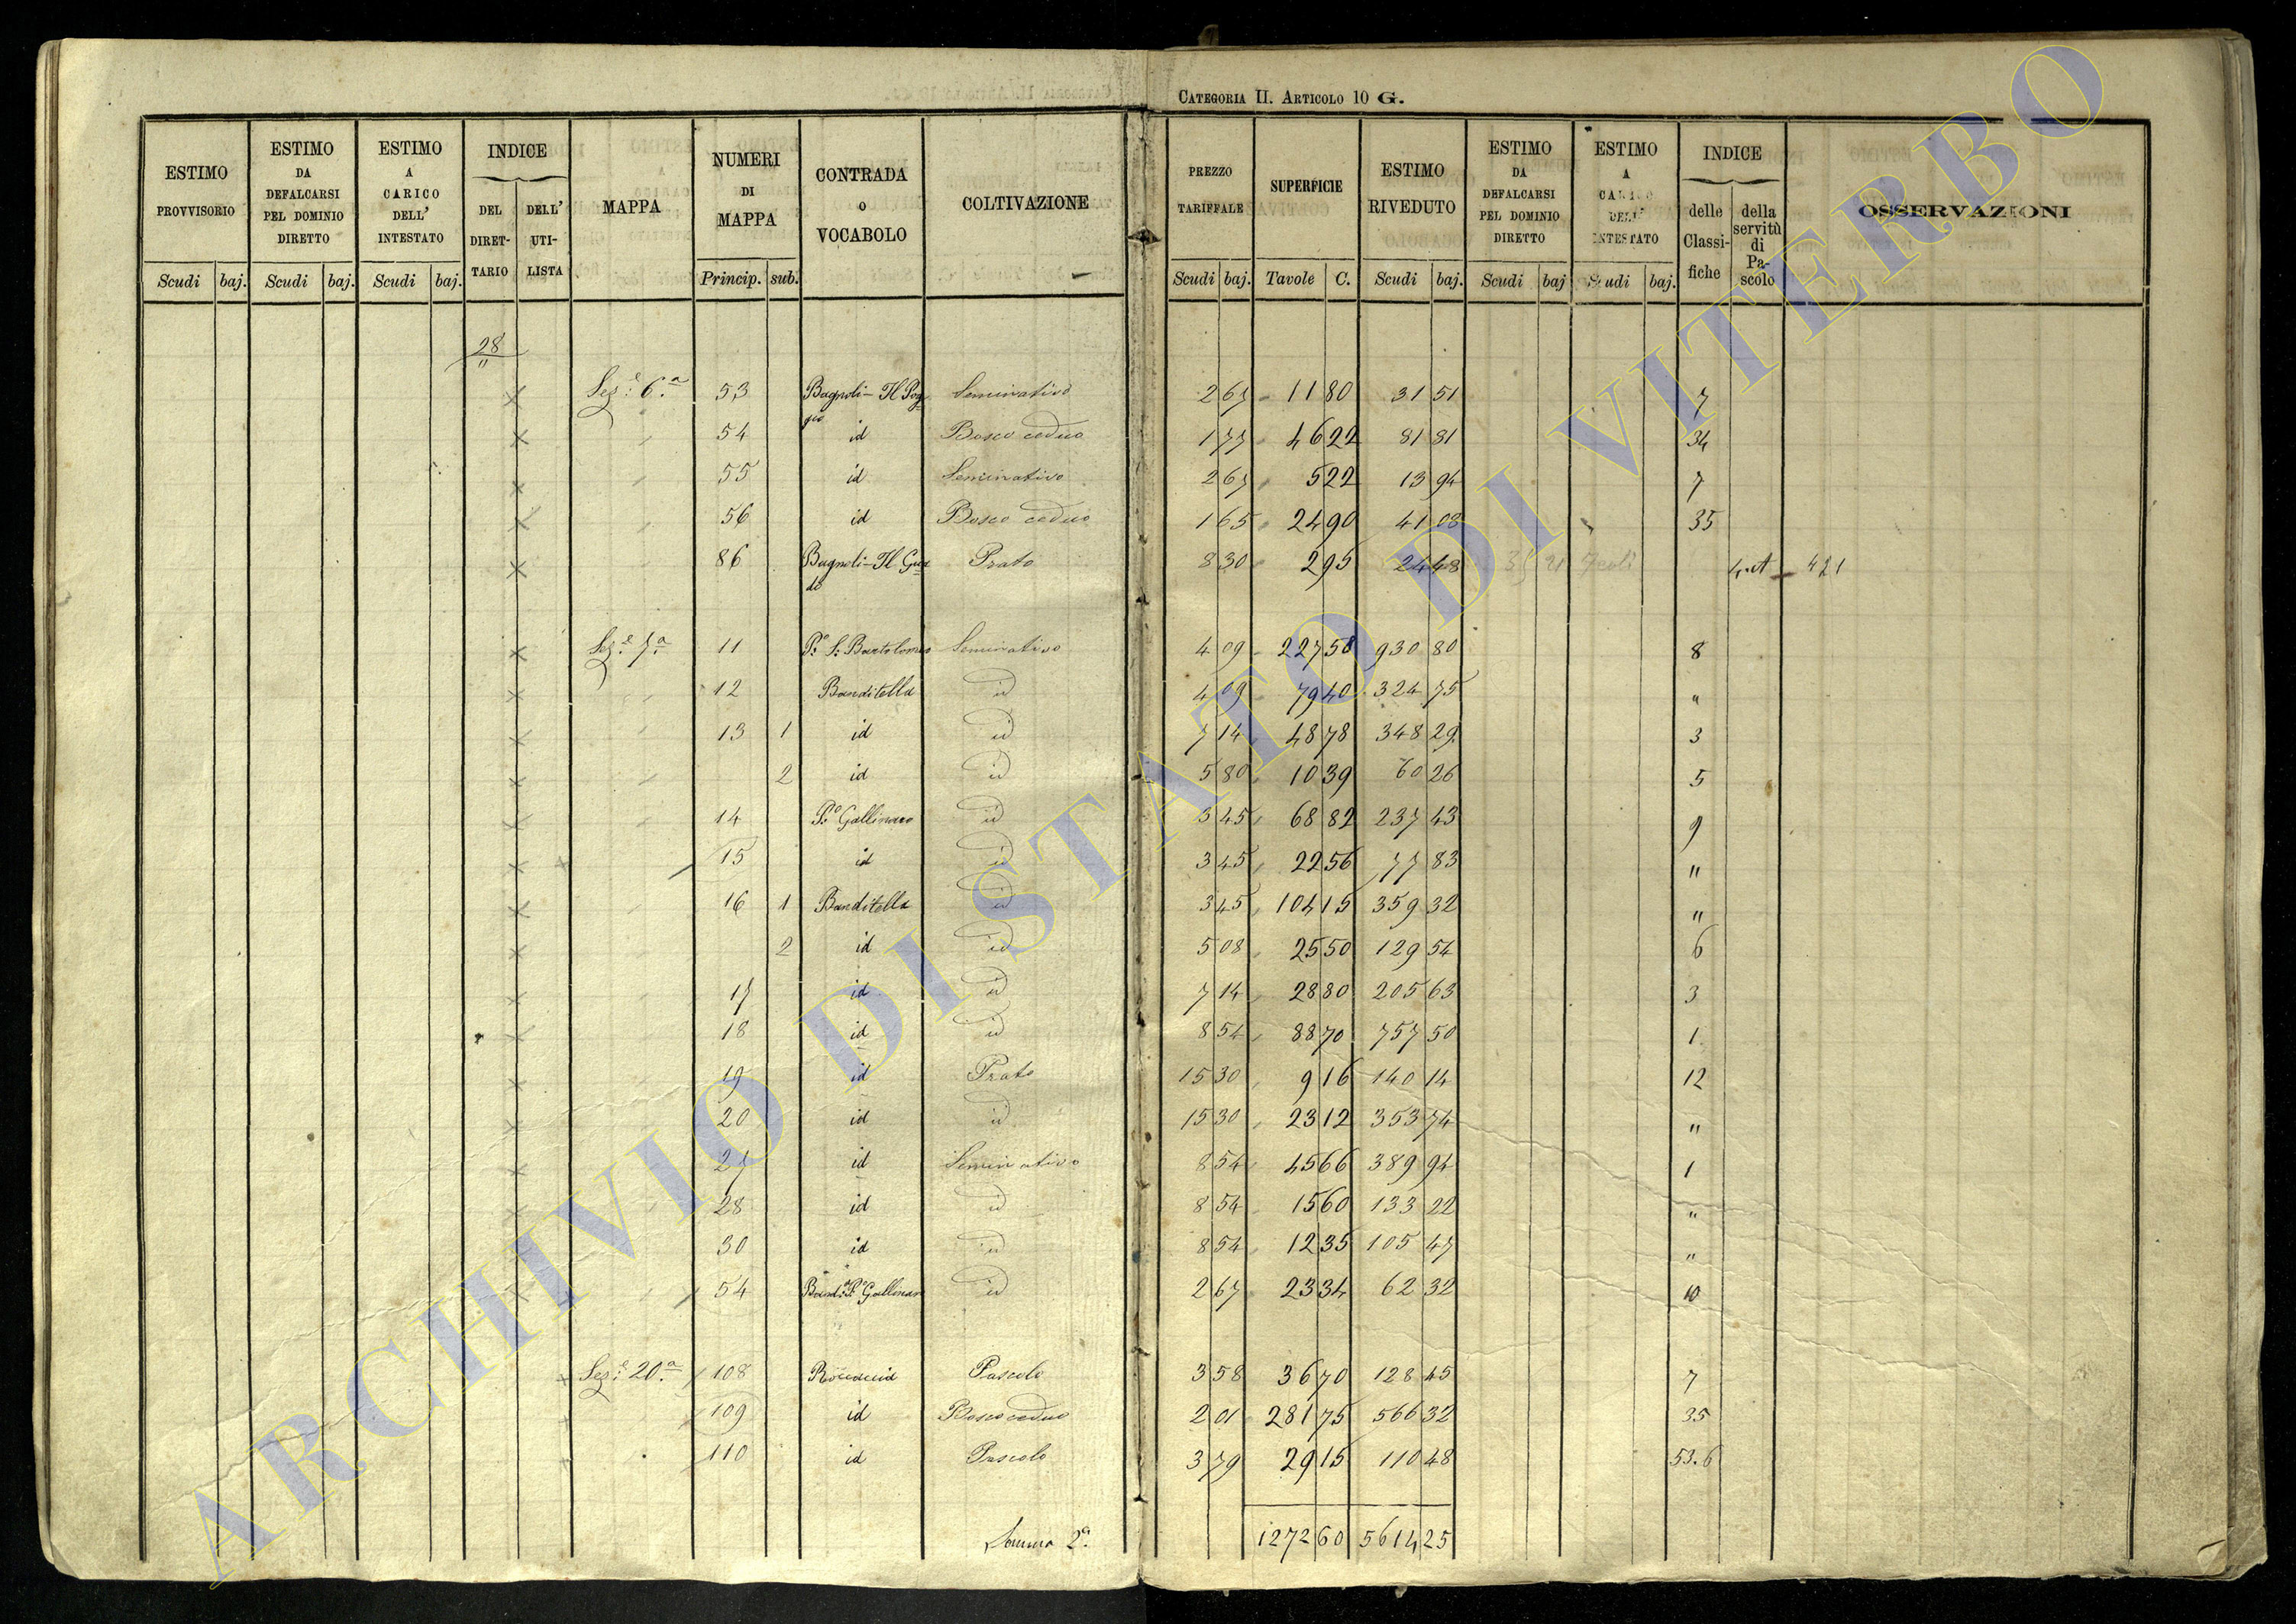 CATEGORIA II. ARTICOLO 10 G.
ESTIMO PROVVISORIO Scudi baj. | ESTIMO DA DEFALCARSI PEL DOMINIO DIRETTO Scudi baj. | ESTIMO A CARICO DELL' INTESTATO Scudi baj. | INDICE DEL DIRET- TARIO | DELL' UTI- LISTA | MAPPA | NUMERI DI MAPPA Princip. sub. | CONTRADA O VOCABOLO | COLTIVAZIONE | PREZZO TARIFFALE Scudi baj. | SUPERFICIE Tavole C. | ESTIMO RIVEDUTO Scudi baj. | ESTIMO DA DEFALCARSI PEL DOMINIO DIRETTO Scudi baj | ESTIMO A CARICO DELL' INTESTATO Scudi baj. | INDICE delle Classi- fiche | della servitù di Pa- scolo | OSSERVAZIONI
28
"
Sez.e 6.a 53 Bagnoli - Il Pog= Seminativo 2 67 11 80 31 51 7
gio
54 id Bosco ceduo 1 77 46 22 81 81 34
55 id Seminativo 2 67 5 22 13 94 7
56 id Bosco ceduo 1 65 24 90 41 08 35
86 Bagnoli - Il Gua= Prato 8 30 2 95 24 48 421
do
Sez.e 7.a 11 P.o S. Bartolomeo Seminativo 4 09 227 58 930 80 8
12 Banditella id 4 09 79 40 324 75 "
13 1 id id 7 14 48 78 348 29 3
2 id id 5 80 10 39 60 26 5
14 P.o Gallinaro id 3 45 68 82 237 43 9
15 id id 3 45 22 56 77 83 "
16 1 Banditella id 3 45 104 15 359 32 "
2 id id 5 08 25 50 129 54 6
17 id id 7 14 28 80 205 63 3
18 id id 8 54 88 70 757 50 1
19 id Prato 15 30 9 16 140 14 12
20 id id 15 30 23 12 353 74 "
27 id Seminativo 8 54 45 66 389 94 1
28 id id 8 54 15 60 133 22 "
30 id id 8 54 12 35 105 47 "
54 Band.a P.o Gallinaro id 2 67 23 34 62 32 10
Sez.e 20.a 108 Pascolo 3 58 36 70 128 45 7
109 id Bosco ceduo 2 01 281 75 566 32 35
110 id Pascolo 3 79 29 15 110 48 53.6
Somma 2.a 1272 60 5614 25
ARCHIVIO DI STATO DI VITERBO